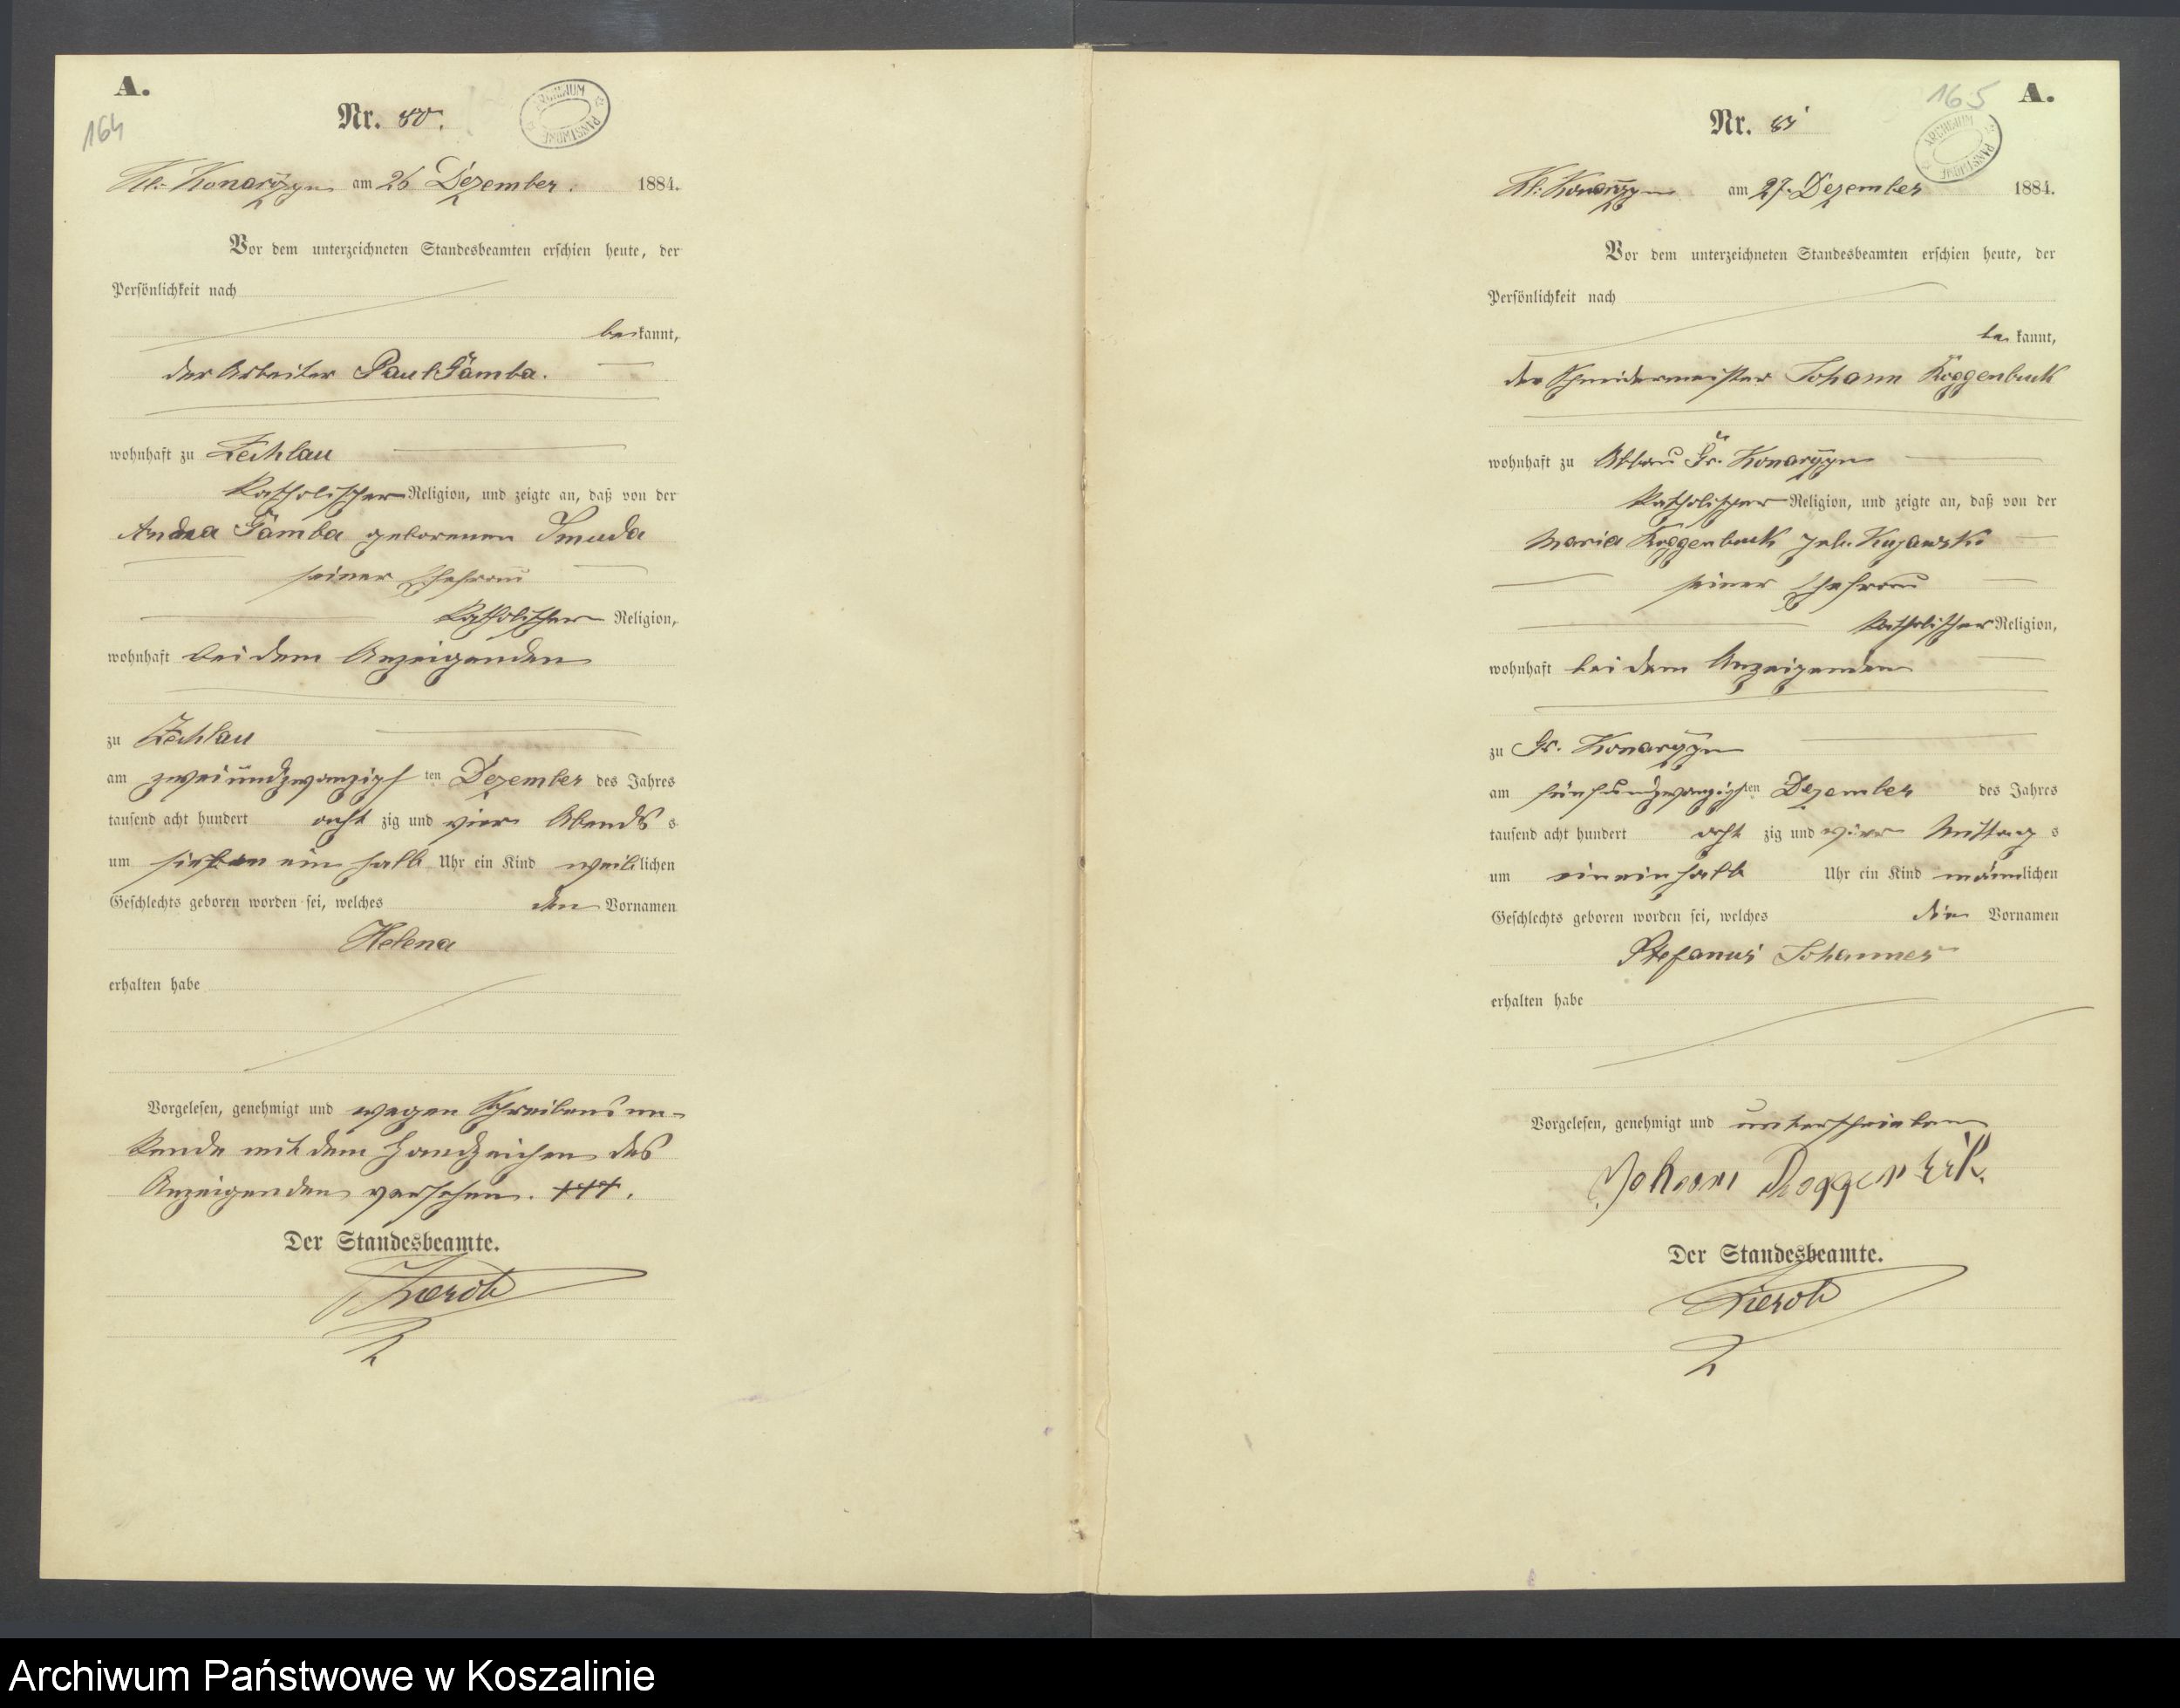 A.
164
Nr. 80.
ARCHIWUM PAŃSTWOWE
Kl: Konarzyn am 26 Dezember. 1884.
Vor dem unterzeichneten Standesbeamten erschien heute, der
Persönlichkeit nach
be kannt,
der Arbeiter Paul
wohnhaft zu Zechlau
Katholischer Religion, und zeigte an, daß von der
geborenen Smuda
seiner Ehefrau
Katholischer Religion,
wohnhaft bei dem Anzeigenden
zu Zechlau
am zweiundzwanzigs ten Dezember des Jahres
tausend acht hundert acht zig und vier Abends s
um sieben ein halb Uhr ein Kind weib lichen
Geschlechts geboren worden sei, welches den Vornamen
Helena
erhalten habe
Vorgelesen, genehmigt und wegen Schreibensun-
kunde mit dem Handzeichen des
Anzeigenden versehen. +++.
Der Standesbeamte.
165 A.
Nr.
ARCHIWUM PAŃSTWOWE
Kl: Konarzyn am 27. Dezember 1884.
Vor dem unterzeichneten Standesbeamten erschien heute, der
Persönlichkeit nach
be kannt,
der Schneidermeister Johann Roggenbuck
wohnhaft zu Abbau Gr. Konarzyn
Katholischer Religion, und zeigte an, daß von der
Maria Roggenbuck geb. Kujawski
seiner Ehefrau
Katholischer Religion,
wohnhaft bei dem Anzeigenden
zu Gr. Konarzyn
am fünfundzwanzigs ten Dezember des Jahres
tausend acht hundert acht zig und vier Mittag s
um ein ein halb Uhr ein Kind männ lichen
Geschlechts geboren worden sei, welches die Vornamen
Stefanus Johannes
erhalten habe
Vorgelesen, genehmigt und unterschrieben
Johann Roggenbuck
Der Standesbeamte.
Archiwum Państwowe w Koszalinie